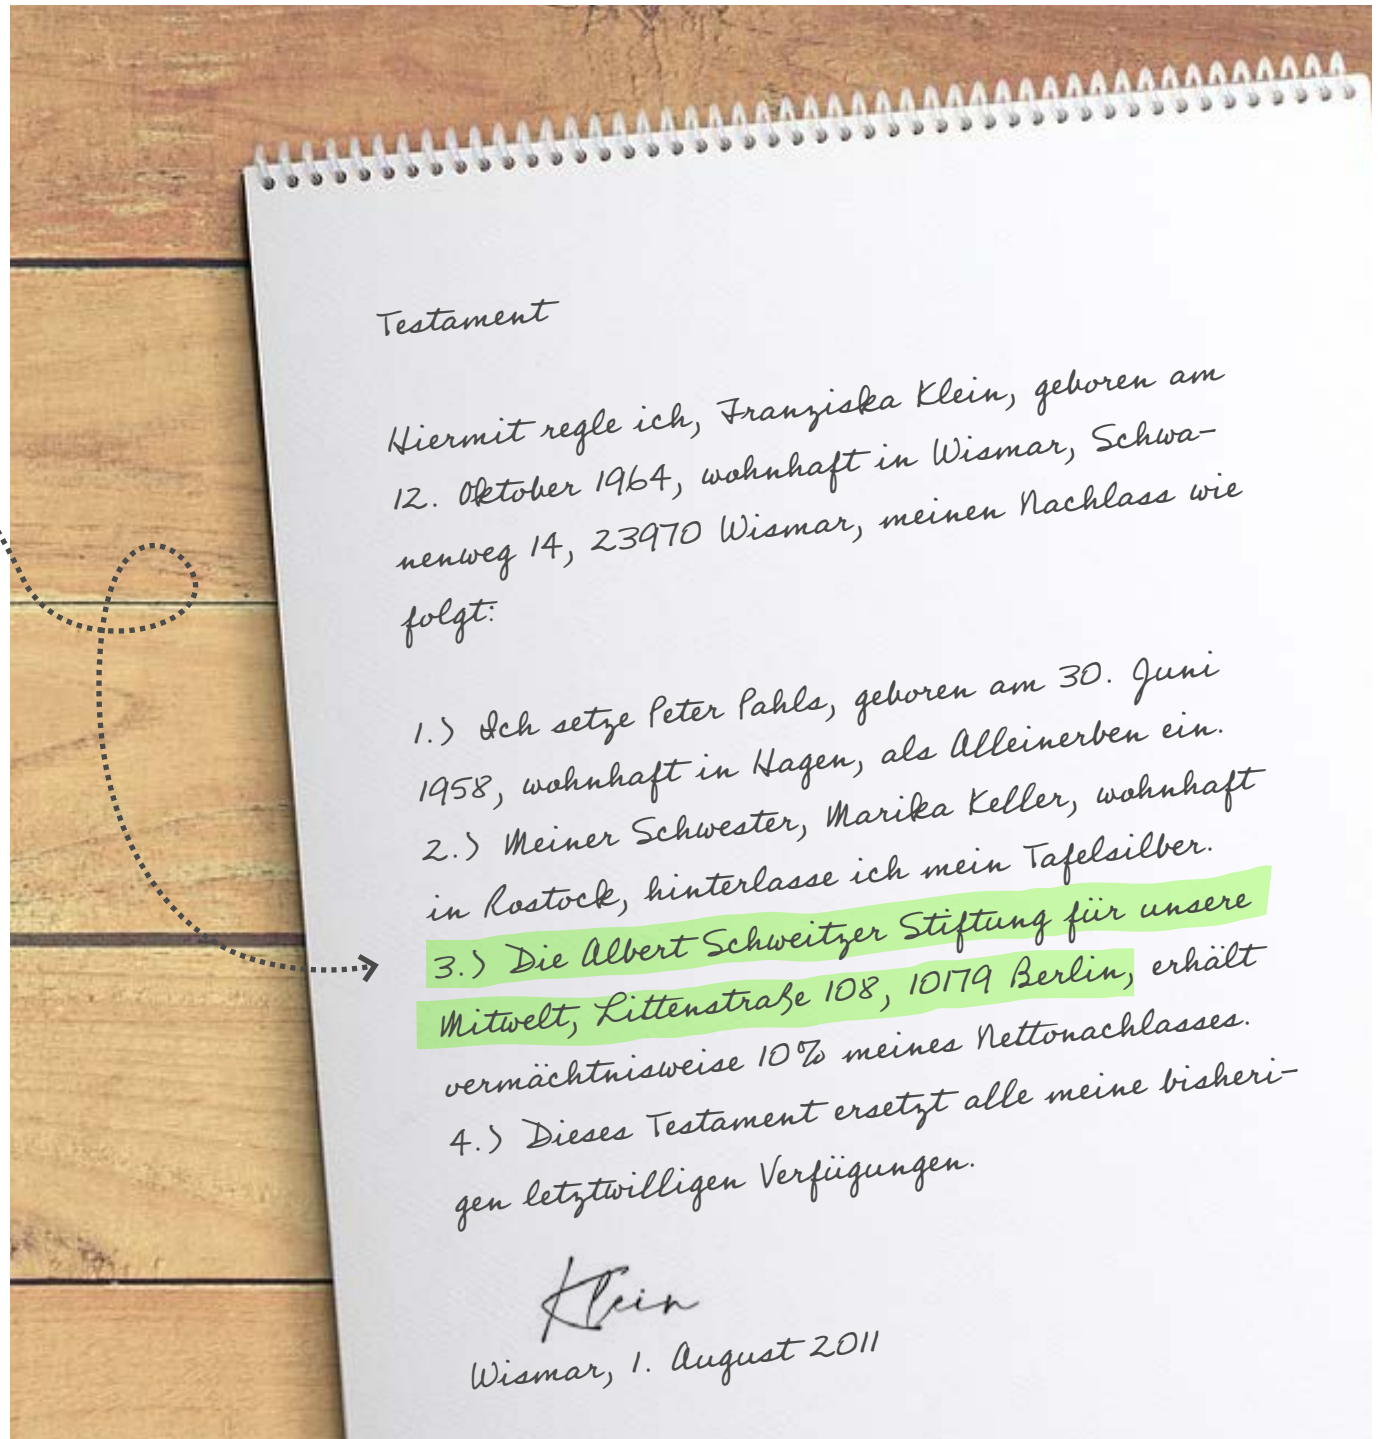 Testament
Hiermit regle ich, Franziska Klein, geboren am
12. Oktober 1964, wohnhaft in Wismar, Schwa-
nenweg 14, 23970 Wismar, meinen Nachlass wie
folgt:
1.) Ich setze Peter Pahls, geboren am 30. Juni
1958, wohnhaft in Hagen, als Alleinerben ein.
2.) Meiner Schwester, Marika Keller, wohnhaft
in Rostock, hinterlasse ich mein Tafelsilber.
3.) Die Albert Schweitzer Stiftung für unsere
Mitwelt, Littenstraße 108, 10179 Berlin, erhält
vermächtnisweise 10% meines Nettonachlasses.
4.) Dieses Testament ersetzt alle meine bisheri-
gen letztwilligen Verfügungen.
Klein
Wismar, 1. August 2011